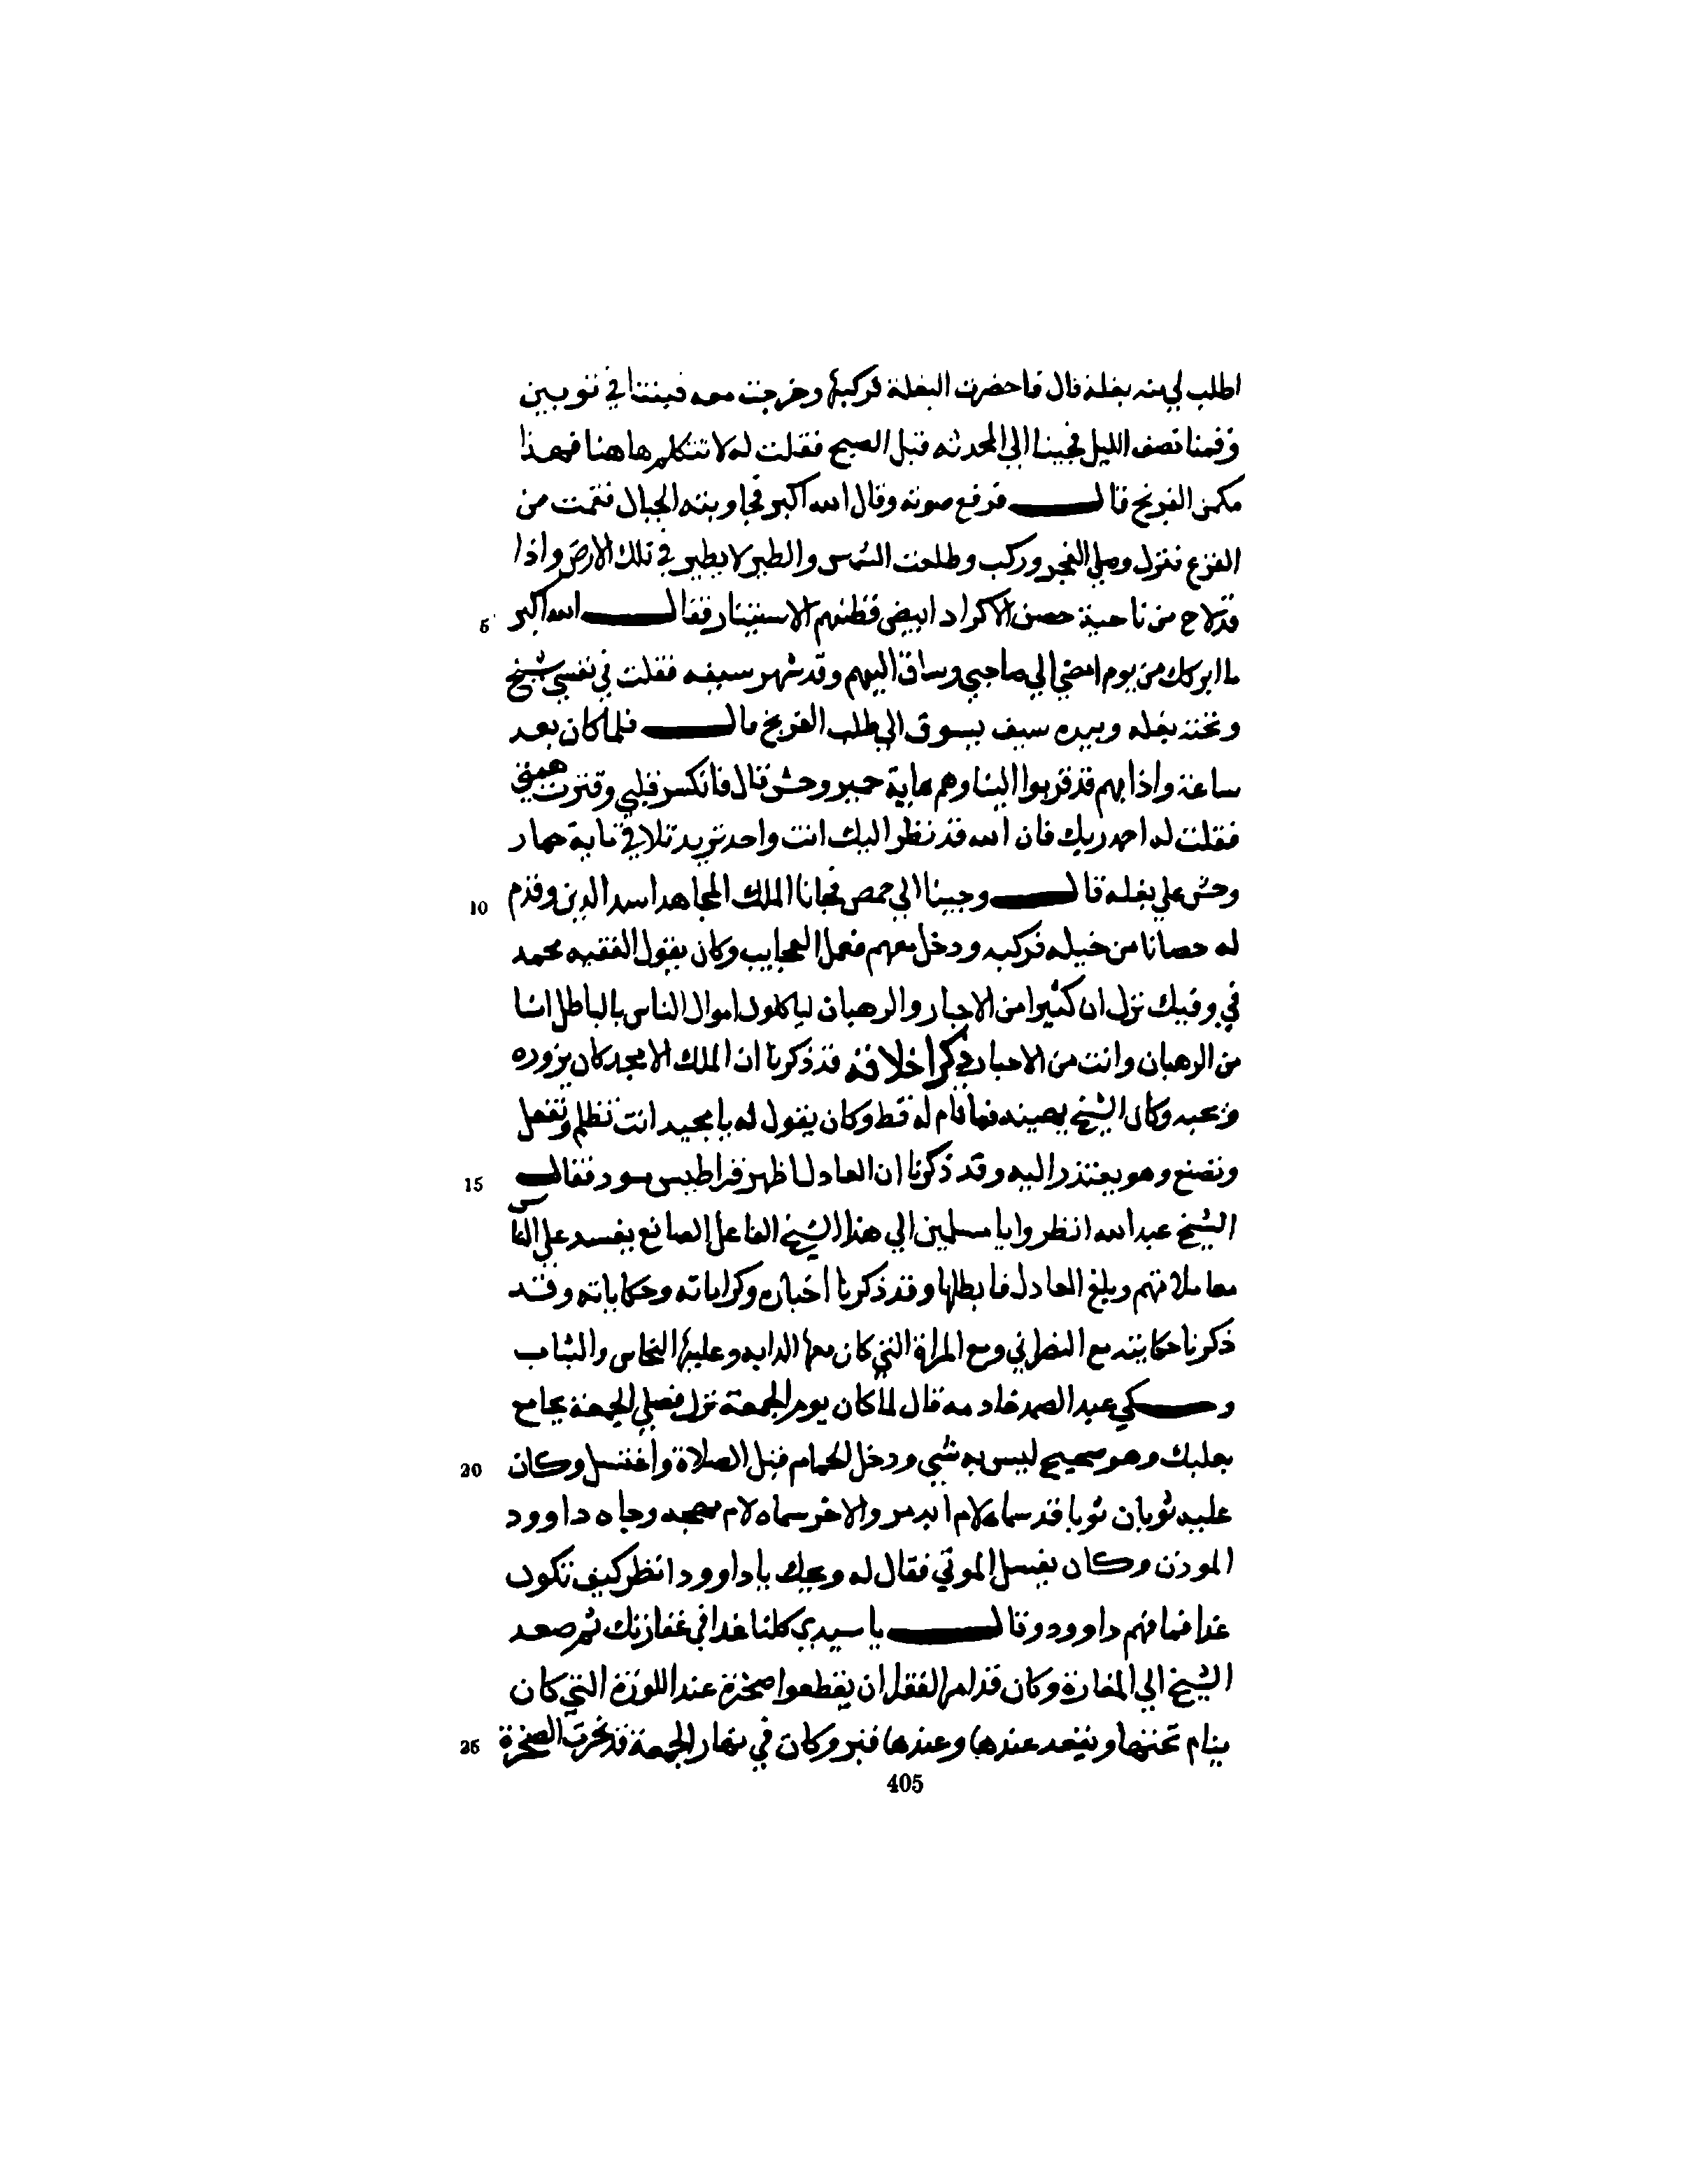 اطلب لي منه بغلة قال فاحضرت البغلة فركبها وخرجت معه فبتنا في
وقمنا نصف الليل فجينا الى المحدثه قبل الصبح فقلت له لا تتكلم هاهنا فهذا
مكمن الفرنج قال فرفع صوته وقال الله اكبر فجاوبته الجبال فتمت من
الفزع فنزل وصلي الفجر وركب وطلعت الشمس والطير لا يطير في تلك الارض واذا
قد لاح من ناحية حصن الاكراد ابيض فظنهم الاسبتار فقال الله اكبر 5
ما ابركك من يوم امضي الي صاحبي وساق اليهم وقد شهر سيفه فقلت في نفسي شيخ
وتحته بغله وبيده سيف يسوق الي طلب الفرنج قال فلما كان بعد
ساعة واذا بهم قد قربوا الينا وهم ماية حمير وحش قال فانكسر قلبي وفترت همتي
فقلت له احمد ربك فان الله قد نظر اليك انت واحد تريد تلاقي ماية حمار
وحش علي بغله قال وجينا الي حمص فجانا الملك المجاهد اسد الدين وقدم 10
له حصانا من خيله فركبه ودخل معهم فعمل العجايب وكان يقول الفقيه محمد
في وفيك نزل ان كثيرا من الاحبار والرهبان لياكلون اموال الناس بالباطل انا
من الرهبان وانت من الاحبار ذكر اخلاقه قد ذكرنا ان الملك الامجد كان يزوره
ويحبه وكان الشيخ يهينه فما قام له قط وكان يقول له يا مجيد انت تظلم وتفعل
وتصنع وهو يعتذر اليه وقد ذكرنا ان العادل اظهر قراطيس سود فقال 15
الشيخ عبد الله انظروا يا مسلمين الي هذا الشيخ الفاعل الصانع يفسد علي الناس
معاملاتهم وبلغ العادل فابطلها وقد ذكرنا اخباره وكراماته وحكاياته وقد
ذكرنا حكايته مع النصراني ومع المراة التي كان معها الدابه وعليها النحاس والثياب
وحكي عبد الصمد خادمه قال لما كان يوم الجمعة نزل فصلي الجمعة بجامع
بعلبك وهو صحيح ليس به شي ودخل الحمام قبل الصلاة واغتسل وكان 20
عليه ثوبان ثوبا قد سماه لام ايدمر والاخر سماه لام وجاه داوود
الموذن وكان يغسل الموتي فقال له ويحك يا داوود انظر كيف تكون
غدا فما فهم داوود وقال يا سيدي كلنا غدا في غفارتك ثم صعد
الشيخ الي المغارة وكان قد امر الفقرا ان يقطعوا صخرة عند اللوزة التي كان
ينام تحتها ويقعد عندها وعندها قبر وكان في نهار الجمعة قد نحرت الصخرة 25
405